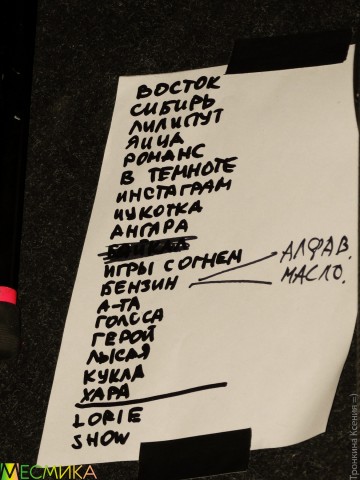 ВОСТОК
СИБИРЬ
ЛИЛИПУТ
ЯИЦА
РОМАНС
В ТЕМНОТЕ
ИНСТАГРАМ
ЧУКОТКА
АНГАРА
ИГРЫ С ОГНЕМ
БЕНЗИН
АЛФАВ.
МАСЛО.
А-ТА
ГОЛОСА
ГЕРОЙ
ЛЫСАЯ
КУКЛА
ХАРА
LORIE
SHOW
МЕСМИКА
Тронкина Ксения =)